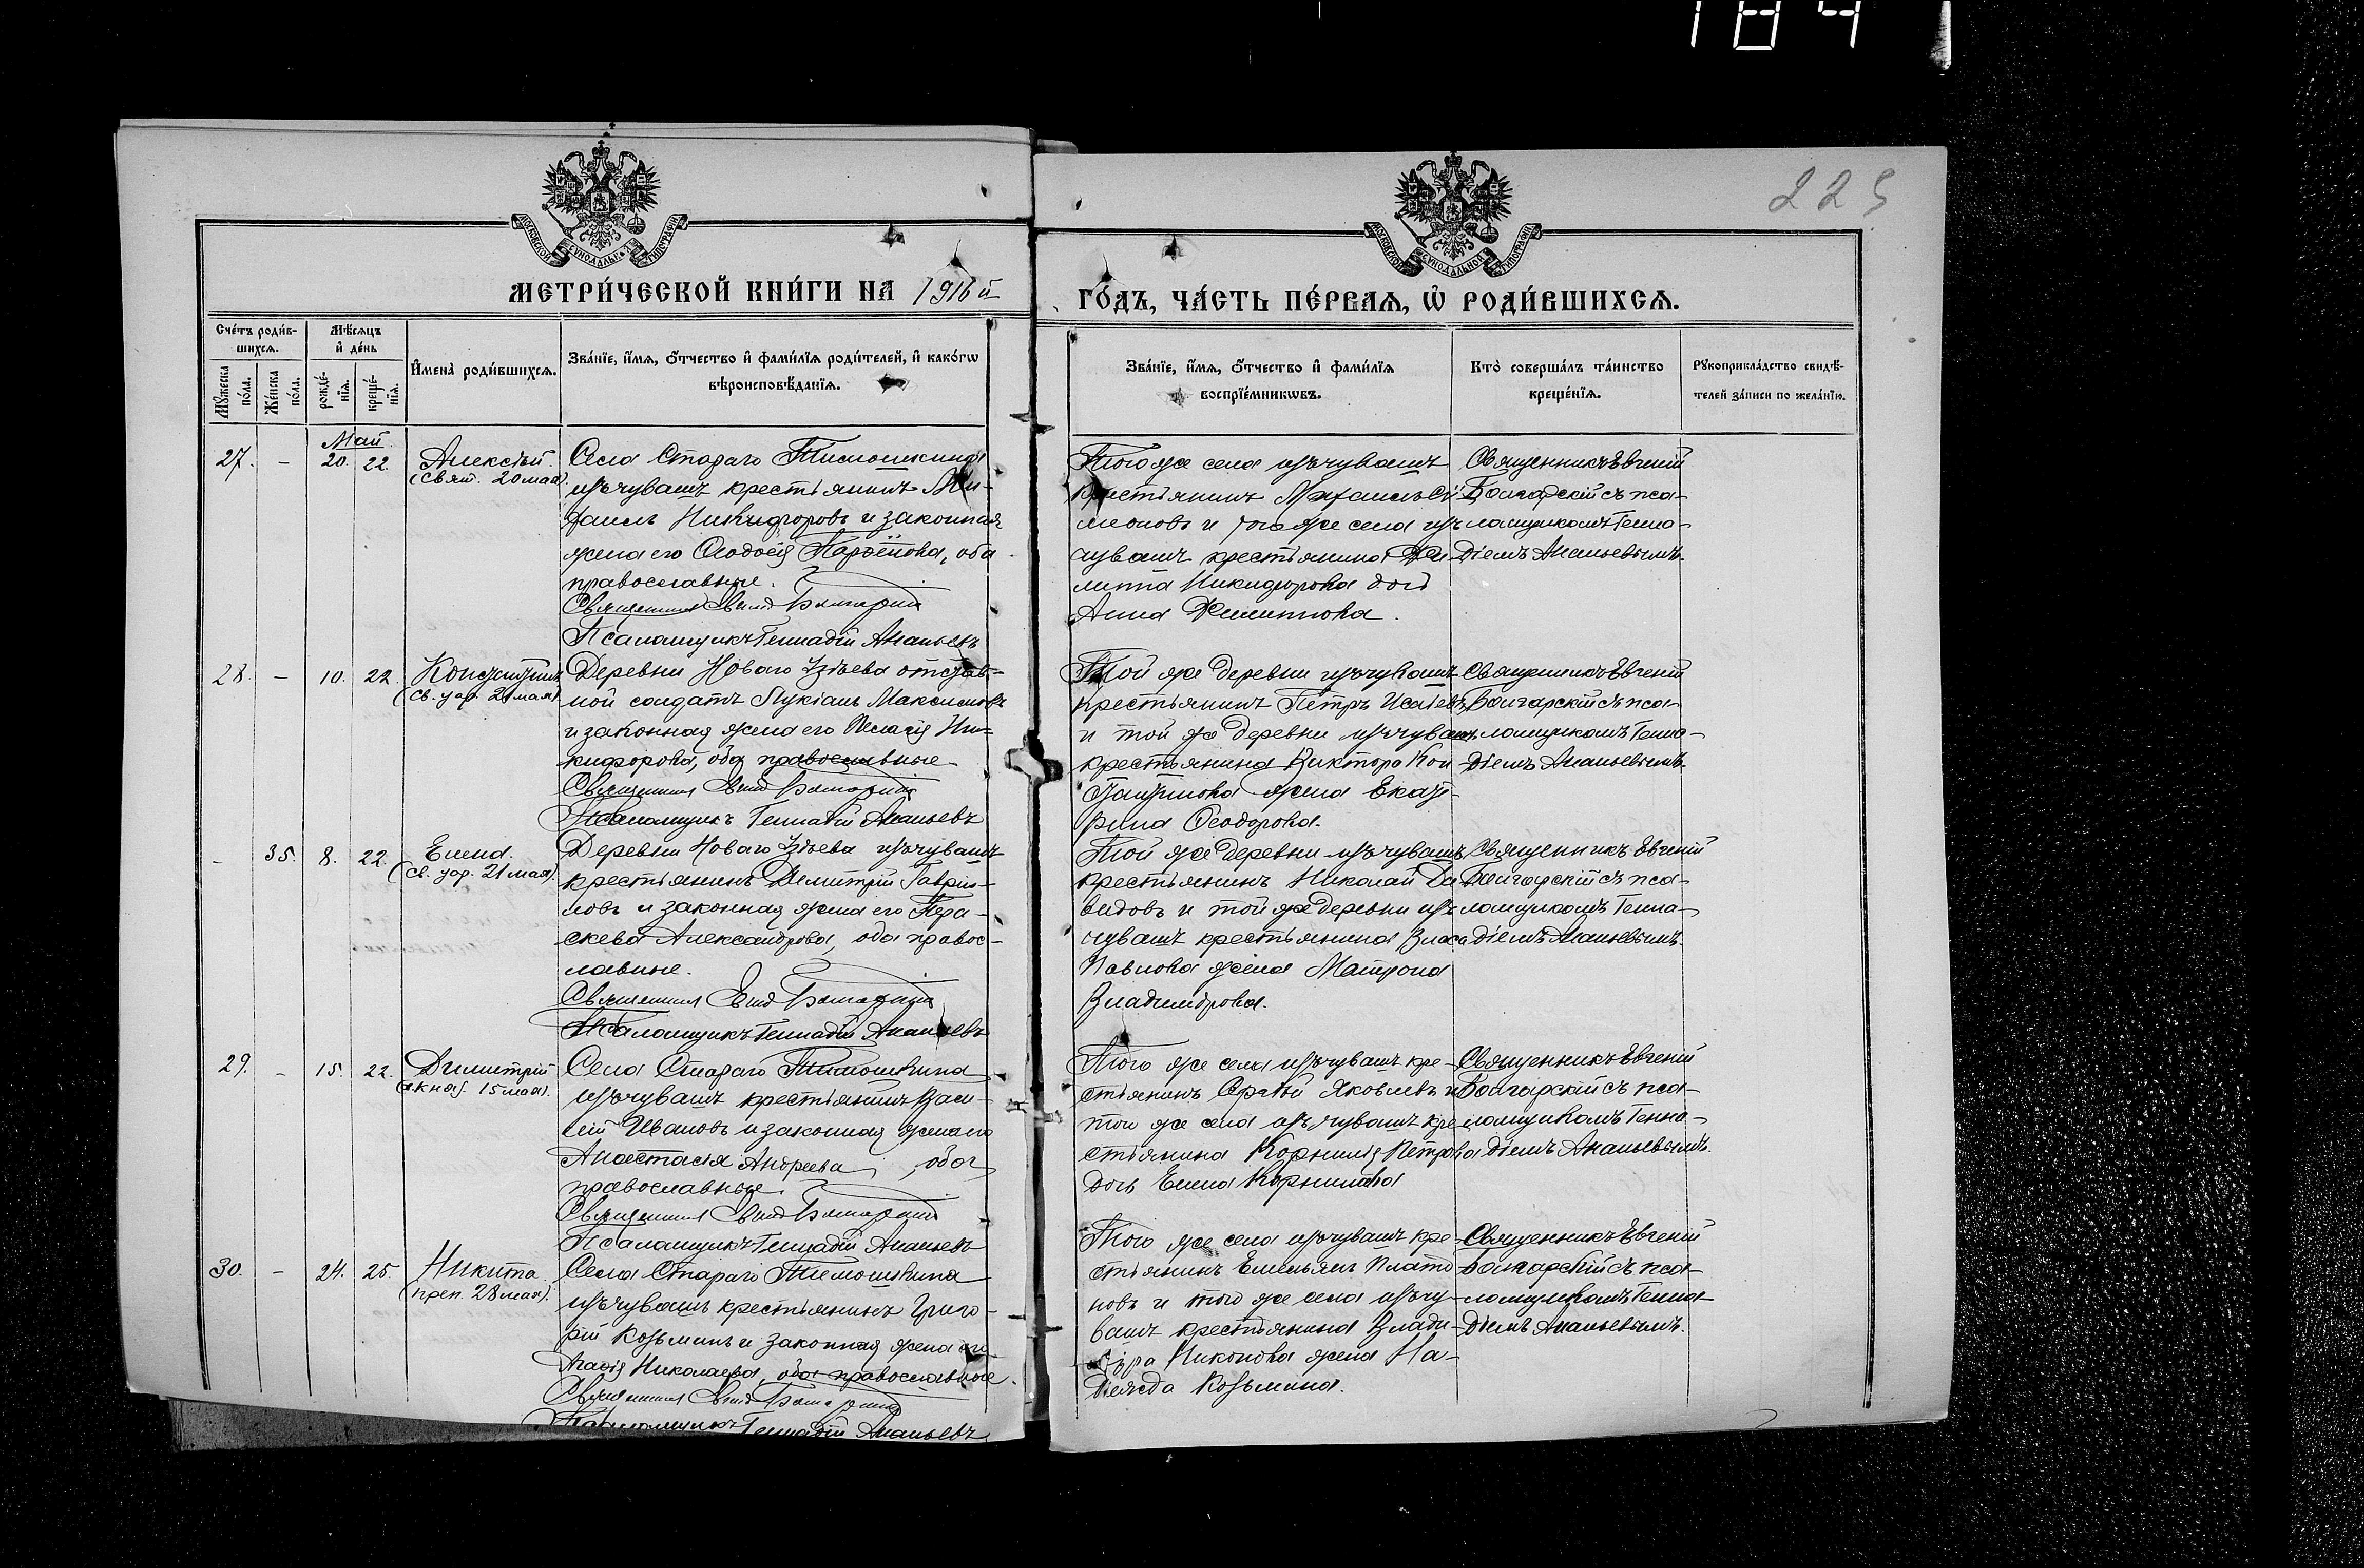 184
225
МОСКОВСКОЙ СУНОДАЛЬНОЙ ТИПОГРАФИИ
МОСКОВСКОЙ СУНОДАЛЬНОЙ ТИПОГРАФИИ
МЕТРИ́ЧЕСКОЙ КНИ́ГИ НА 1916 й
ГО́ДЪ, ЧА́СТЬ ПЕ́РВАЯ, Ѡ РОДИ́ВШИХСЯ.
Сче́тъ роди́в-
шихся.
Мѣсяцъ
и де́нь
Мꙋжеска
по́ла.
Же́нска
по́ла.
рожде́-
нїя.
креще́-
нїя.
Имена̀ роди́вшихся.
Зва́нїе, и́мя, о́тчество и фами́лїя роди́телей, и како́гѡ
вѣроисповѣ́данїя.
Зва́нїе, и́мя, о́тчество и фами́лїя
воспрїе́мникѡвъ.
Кто̀ соверша́лъ та́инство
креще́нїя.
Рꙋкоприкла́дство свидѣ́-
телей за́писи по жела́нїю.
Май.
27. - 20. 22.
Алексѣй.
(свят. 20 мая)
Села Стараго Тимошкина
изъ чувашъ крестьянинъ Ми-
хаилъ Никифоровъ и законная
жена его Ѳеодосія Парѳенова, оба
православные.
Священникъ Евгеній Болгарскій
Псаломщикъ Геннадій Ананьевъ
Того же села изъ чувашъ
крестьянинъ Михаилъ Си-
меоновъ и того же села изъ
чувашъ крестьянина Фи-
липпа Никифорова дочь
Анна Филиппова.
Священникъ Евгеній
Болгарскій съ пса-
ломщикомъ Генна-
діемъ Ананьевымъ.
28. - 10. 22.
Константинъ
(св. цар. 21 мая)
Деревни Новаго Узѣева отстав-
ной солдатъ Лукіанъ Максимовъ
и законная жена его Пелагія Ни-
кифорова, оба православные
Священникъ Евгеній Болгарскій
Псаломщикъ Геннадій Ананьевъ
Той же деревни изъ чувашъ
крестьянинъ Петръ Исаевъ
и той же деревни изъ чувашъ
крестьянина Виктора Кон-
стантинова жена Екате-
рина Ѳеодорова.
Священникъ Евгеній
Болгарскій съ пса-
ломщикомъ Генна-
діемъ Ананьевымъ.
- 35. 8. 22.
Елена.
(св. цар. 21 мая).
Деревни Новаго Узѣева изъ чувашъ
крестьянинъ Димитрій Гаврии-
ловъ и законная жена его Пара-
скева Александрова, оба правос-
лавные.
Священникъ Евгеній Болгарскій
Псаломщикъ Геннадій Ананьевъ
Той же деревни изъ чувашъ
крестьянинъ Николай Да-
видовъ и той же деревни изъ
чувашъ крестьянина Власа
Павлова жена Матрона
Владимірова.
Священникъ Евгеній
Болгарскій съ пса-
ломщикомъ Генна-
діемъ Ананьевымъ.
29. - 15. 22.
Димитрій
(бл. княз. 15 мая).
Села Стараго Тимошкина
изъ чувашъ крестьянинъ Васи-
лій Ивановъ и законная жена его
Анастасія Андреева, оба
православные.
Священникъ Евгеній Болгарскій
Псаломщикъ Геннадій Ананьевъ
Того же села изъ чувашъ кре-
стьянинъ Сергѣй Яковлевъ и
того же села изъ чувашъ кре-
стьянина Корнилія Петрова
дочь Елена Корнилова
Священникъ Евгеній
Болгарскій съ пса-
ломщикомъ Генна-
діемъ Ананьевымъ.
30. - 24. 25.
Никита
(преп. 28 мая).
Села Стараго Тимошкина
изъ чувашъ крестьянинъ Григо-
рій Козьминъ и законная жена его
Агаѳія Николаева, оба православные.
Священникъ Евгеній Болгарскій
Псаломщикъ Геннадій Ананьевъ
Того же села изъ чувашъ кре-
стьянинъ Емельянъ Плато-
новъ и того же села изъ чу-
вашъ крестьянина Влади-
міра Никонова жена На-
дежда Козьмина.
Священникъ Евгеній
Болгарскій съ пса-
ломщикомъ Генна-
діемъ Ананьевымъ.